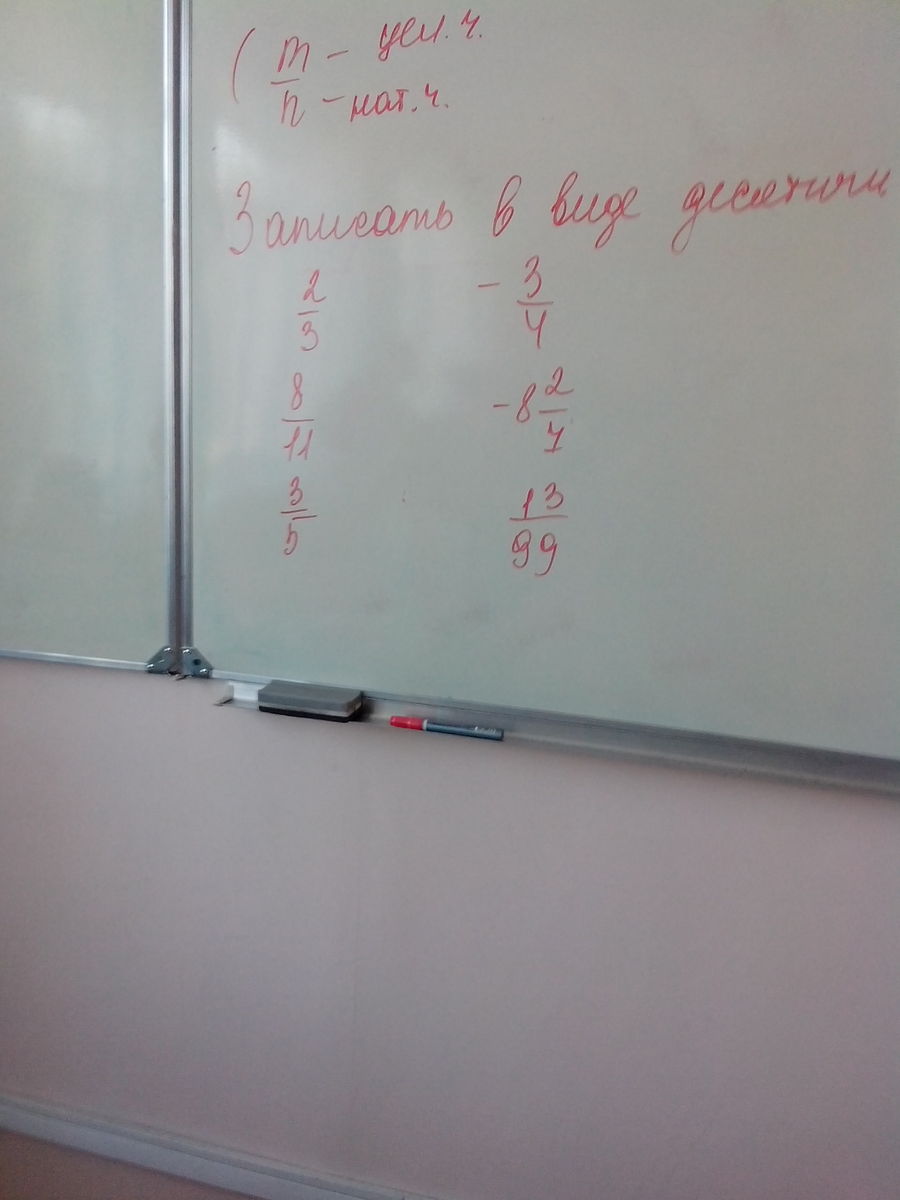 ( m/n – цел. ч.
– нат. ч.
Записать в виде десятичн
2/3 - 3/4
8/11 - 8 2/7
3/5 13/99